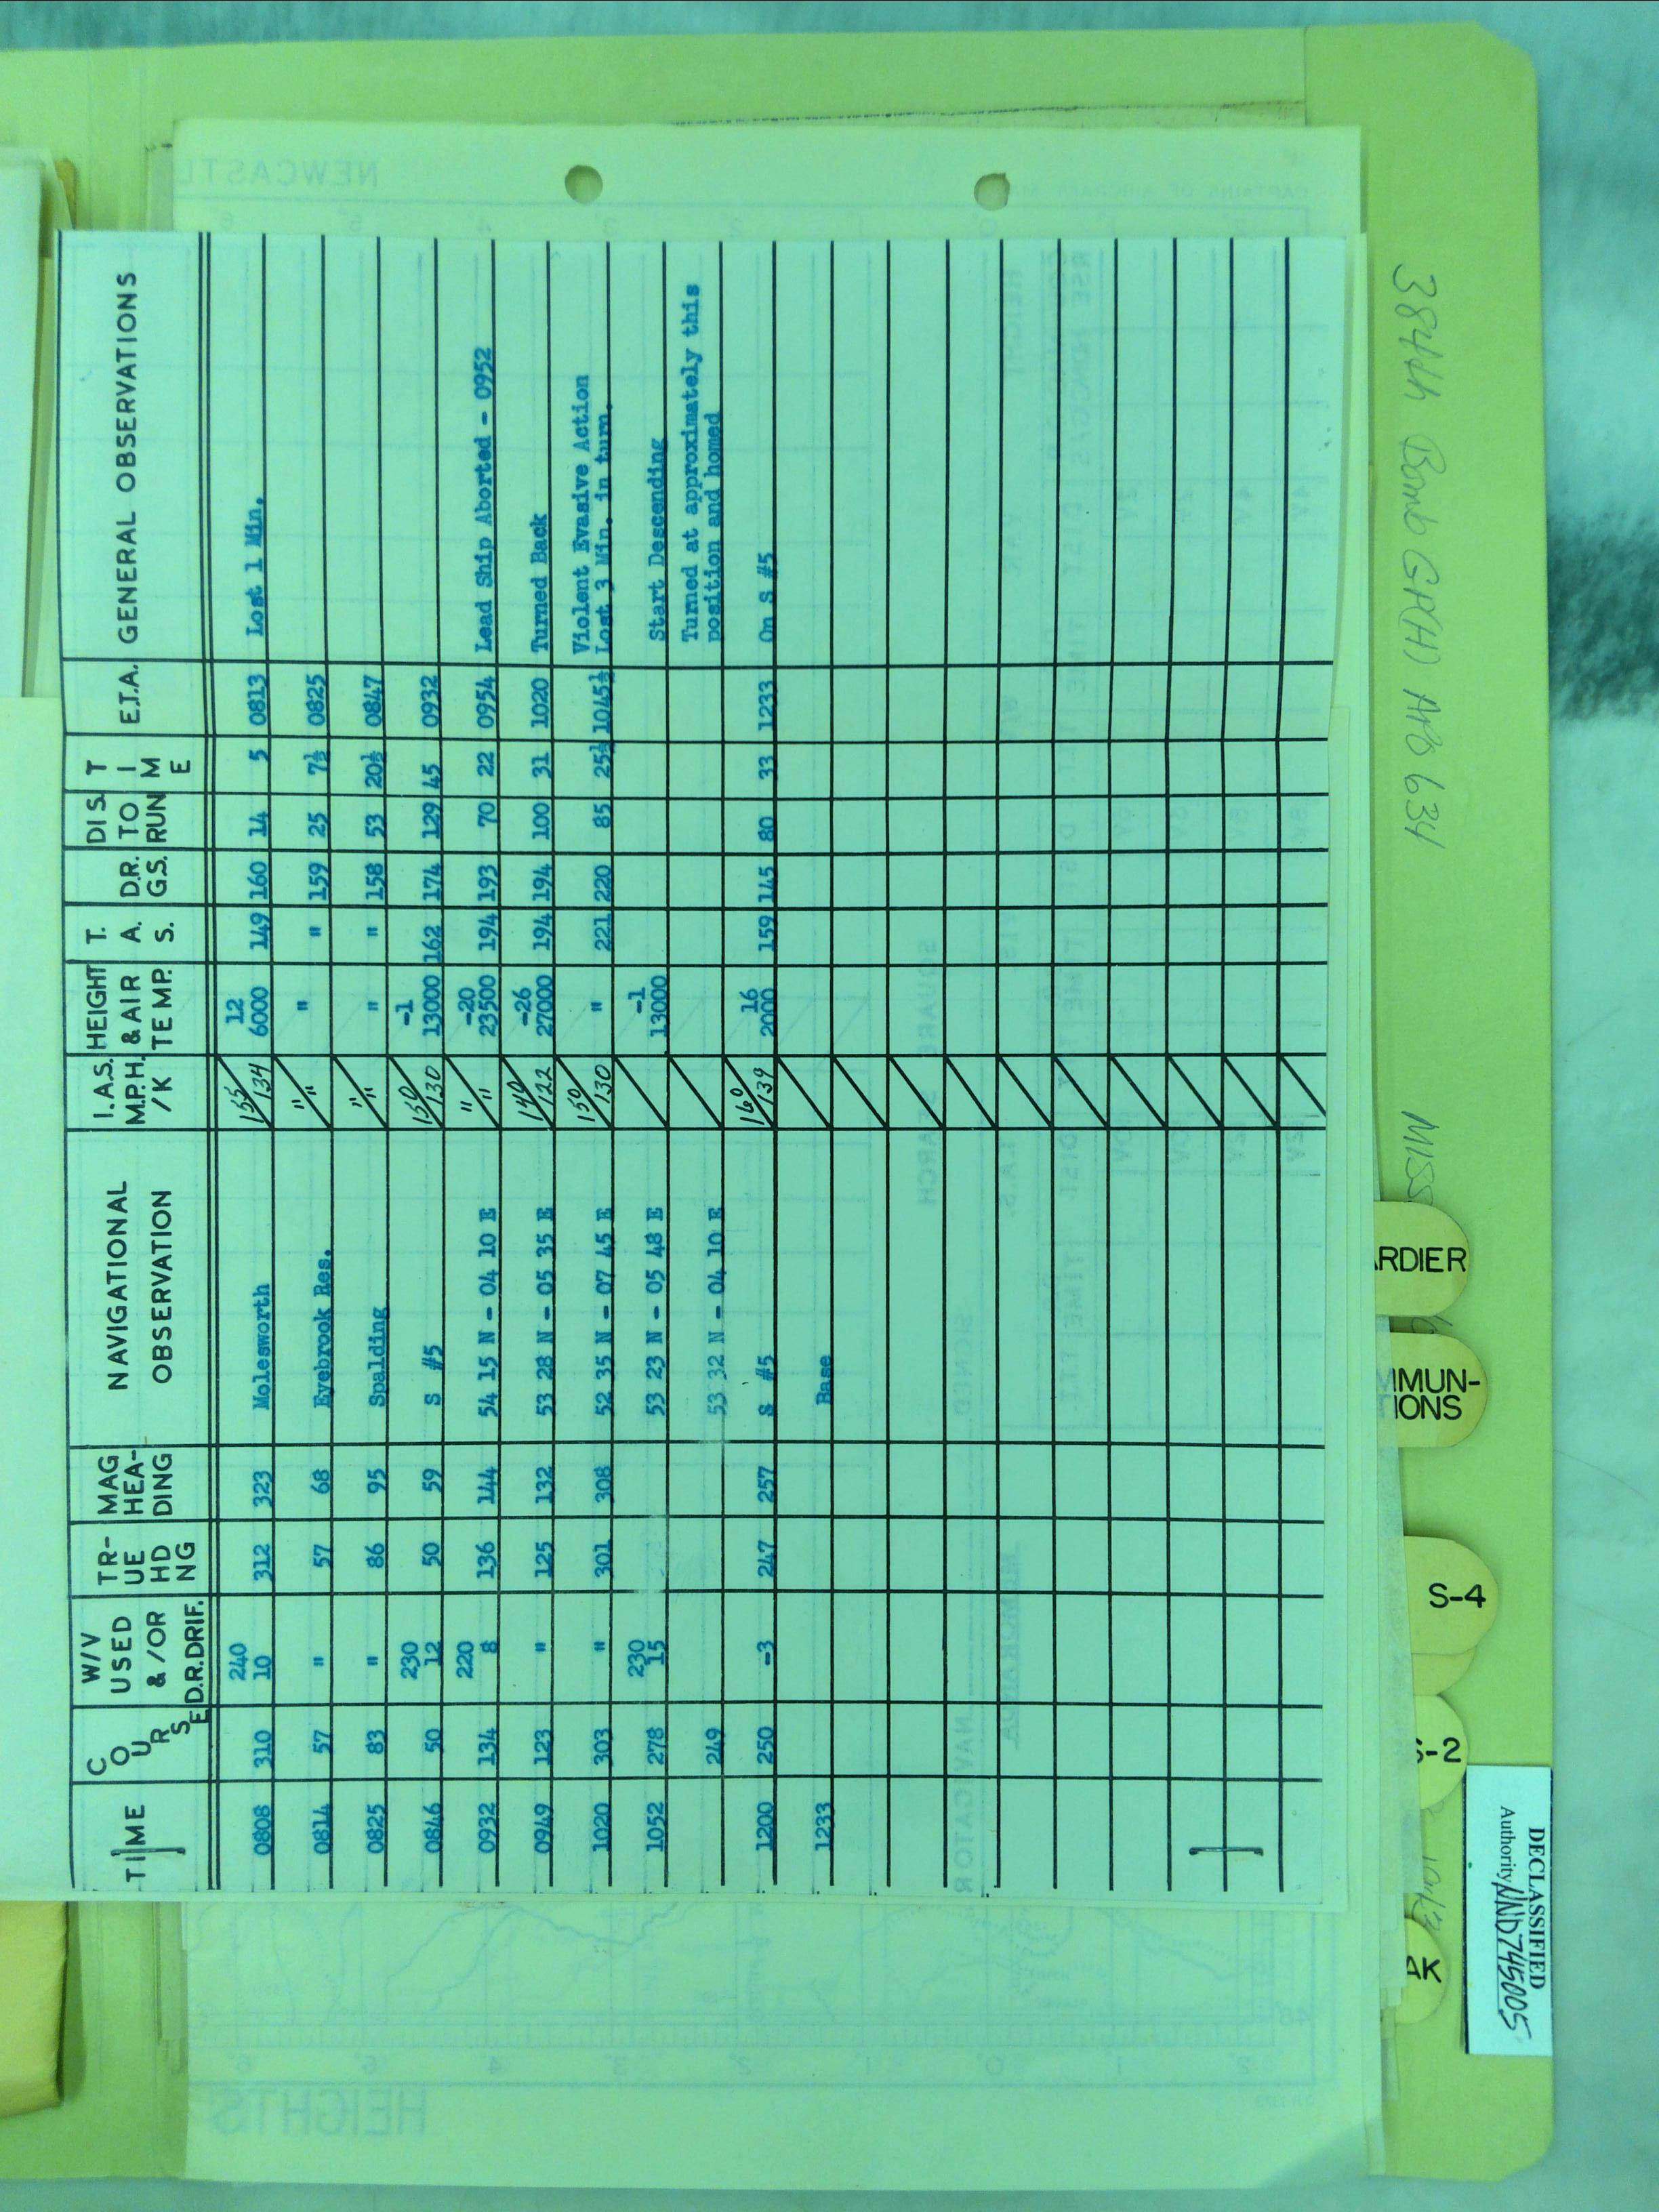 TIME COURSE W/V USED & /OR D.R.DRIF. TRUE HDNG MAG HEADING NAVIGATIONAL OBSERVATION I.A.S. M.P.H. /K HEIGHT & AIR TEMP. T. A. S. D.R. G.S. DIS. TO RUN TIME E.T.A. GENERAL OBSERVATIONS
0808 310 240 10 312 323 Molesworth 155/134 12 6000 149 160 14 5 0813 Lost 1 Min.
0814 57 " 57 68 Eyebrook Res. "/" " " 159 25 7½ 0825
0825 83 " 86 95 Spalding "/" " " 158 53 20½ 0847
0846 50 230 12 50 59 S #5 150/130 -1 13000 162 174 129 45 0932
0932 134 220 8 136 144 54 15 N - 04 10 E "/" -20 23500 194 193 70 22 0954 Lead Ship Aborted - 0952
0949 123 " 125 132 53 28 N - 05 35 E 140/122 -26 27000 194 194 100 31 1020 Turned Back
1020 303 " 301 308 52 35 N - 07 45 E 150/130 " 221 220 85 25½ 1045½ Violent Evasive Action
Lost 3 Min. in turn.
1052 278 230 15 53 23 N - 05 48 E -1 13000 Start Descending
249 53 32 N - 04 10 E Turned at approximately this
position and homed
1200 250 -3 247 257 S #5 160/139 16 2000 159 145 80 33 1233 On S #5
1233 Base
384th Bomb GP(H) APO 634
MISS
ARDIER
MMUN-
IONS
S-4
S-2
AK
DECLASSIFIED
Authority NND745005
NEWCASTL
HEIGHTS
SQUARE SEARCH
NAVIGATOR
SIGNED